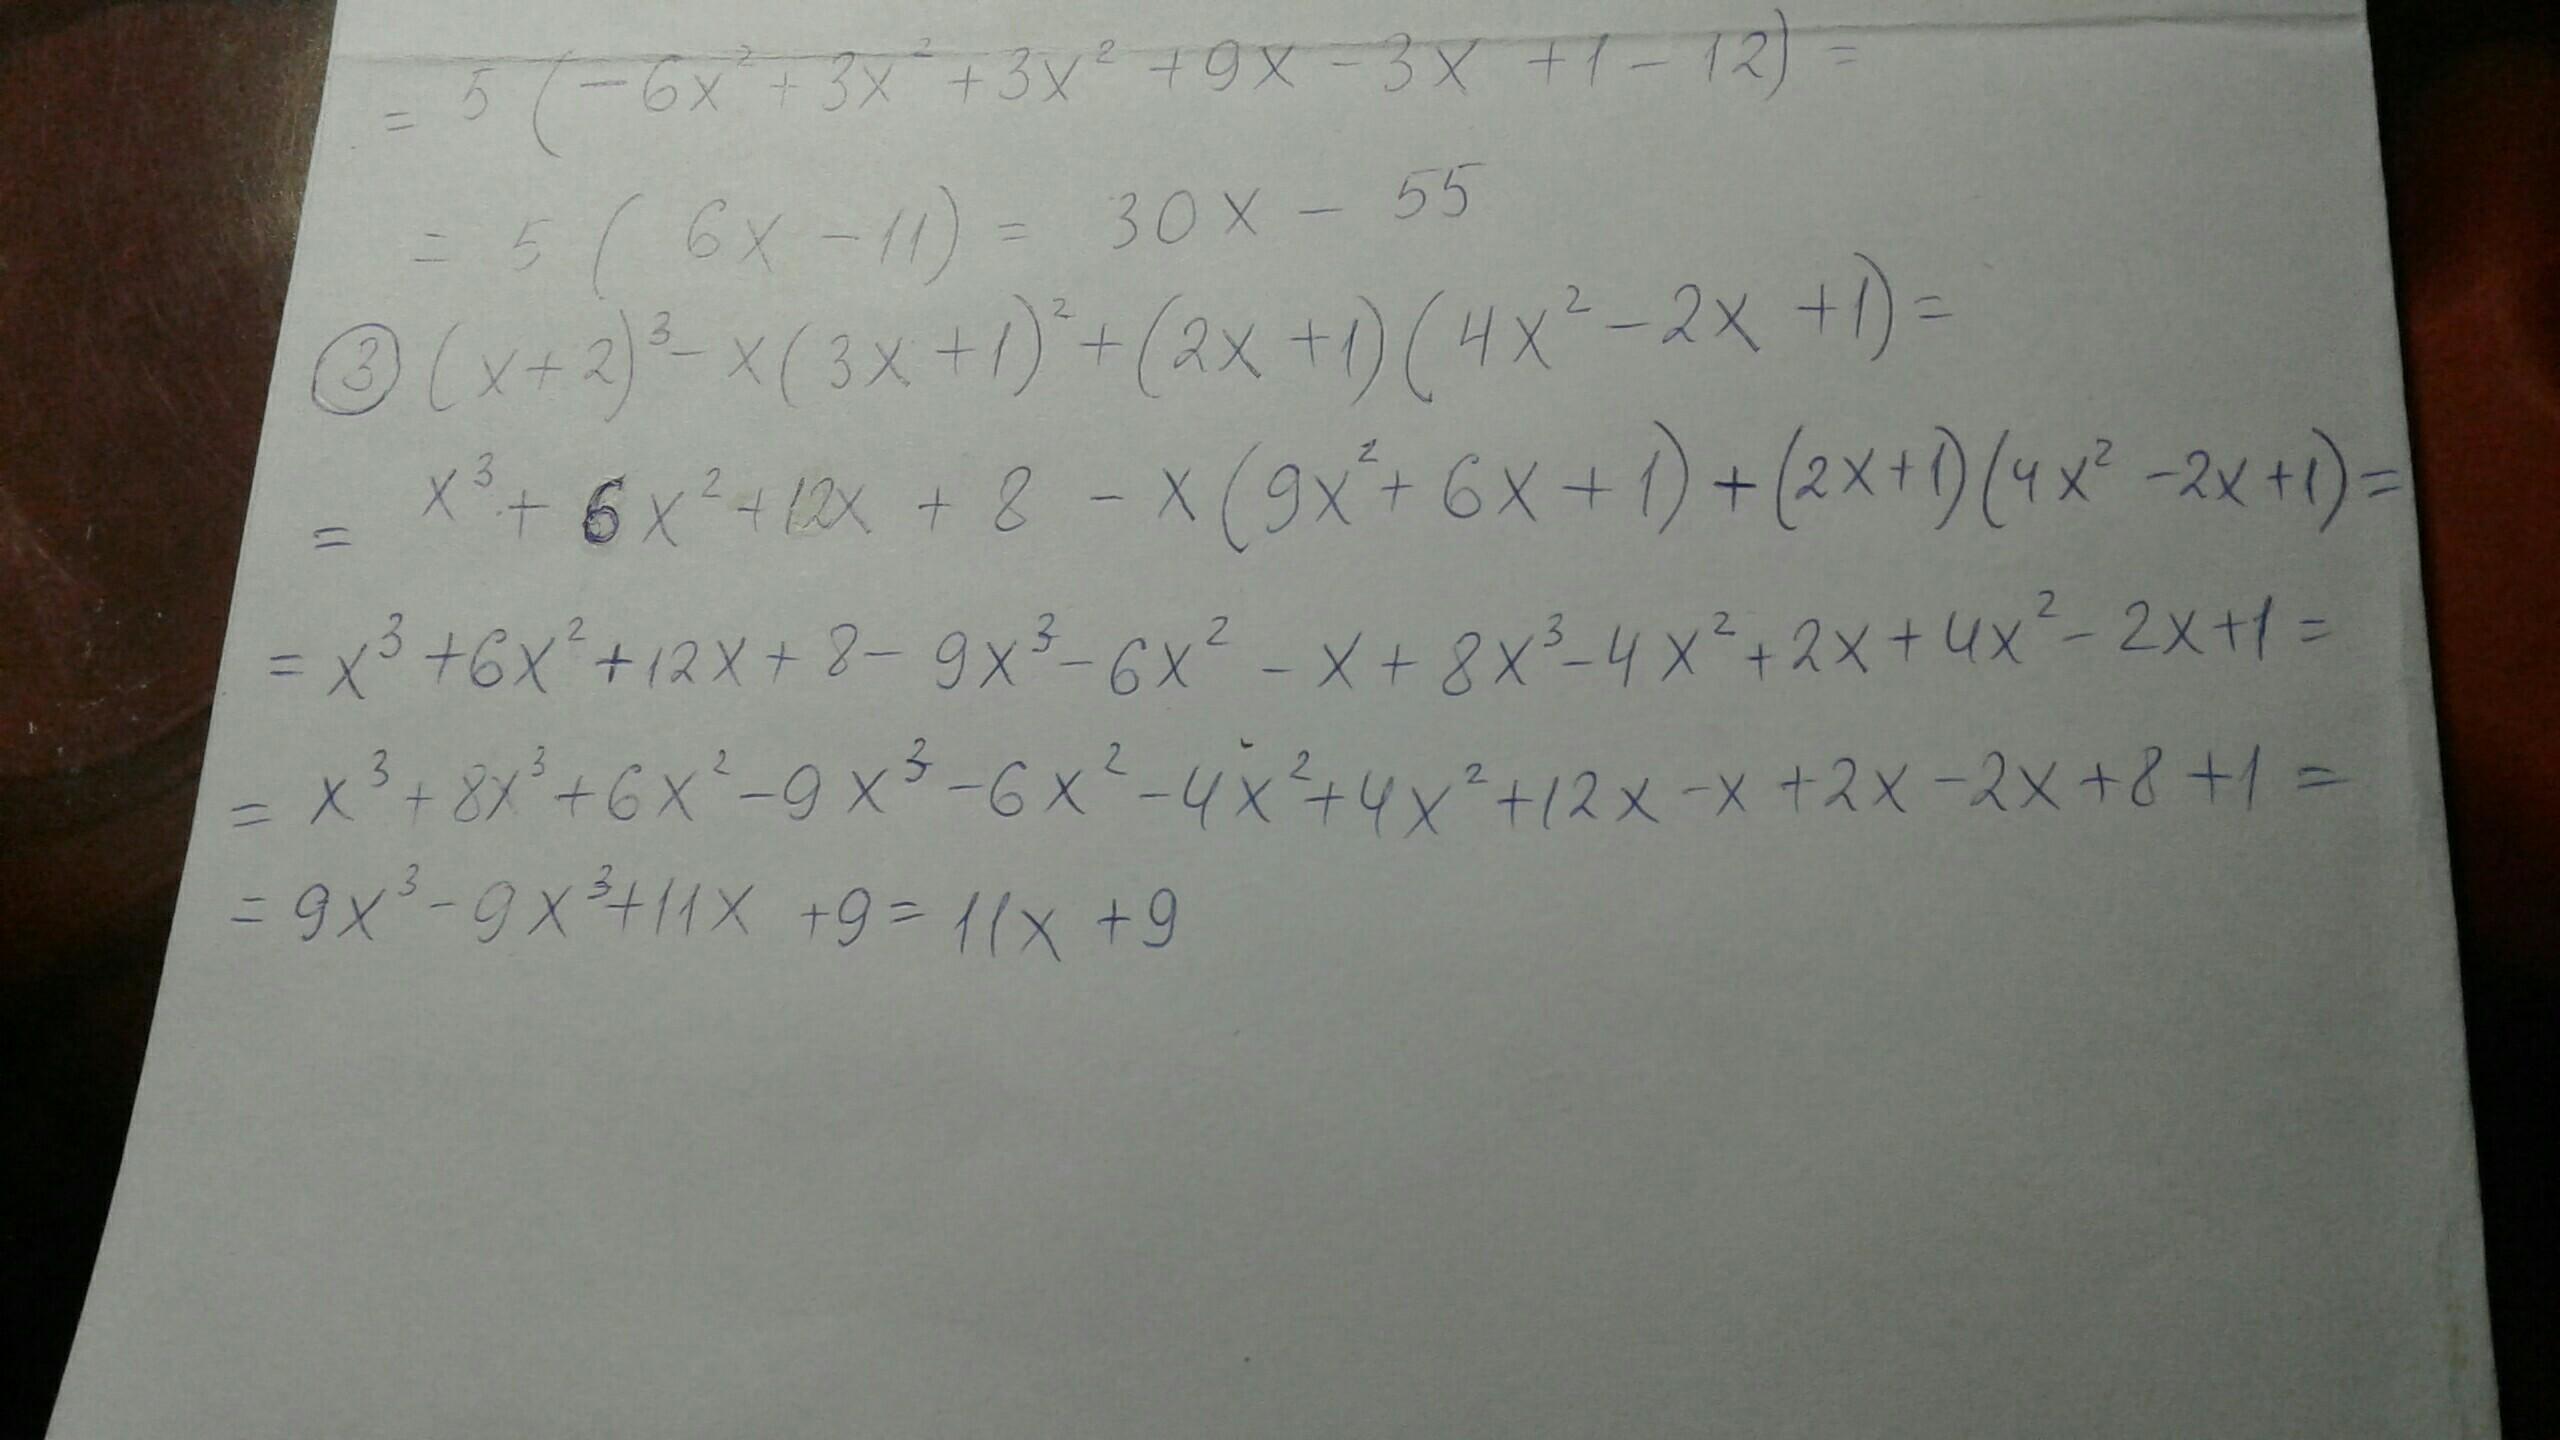 = 5 (-6x² + 3x² + 3x² + 9x - 3x + 1 - 12) =
= 5 ( 6x - 11) = 30x - 55
③ (x+2)³ - x(3x+1)² + (2x+1)(4x² - 2x + 1) =
= x³ + 6x² + 12x + 8 - x(9x² + 6x + 1) + (2x+1)(4x² - 2x + 1) =
= x³ + 6x² + 12x + 8 - 9x³ - 6x² - x + 8x³ - 4x² + 2x + 4x² - 2x + 1 =
= x³ + 8x³ + 6x² - 9x³ - 6x² - 4x² + 4x² + 12x - x + 2x - 2x + 8 + 1 =
= 9x³ - 9x³ + 11x + 9 = 11x + 9